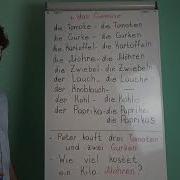 das Gemüse
die Tomate - die Tomaten
die Gurke - die Gurken
die Kartoffel - die Kartoffeln
die Möhre - die Möhren
die Zwiebel - die Zwiebeln
der Lauch - die Lauche
der Knoblauch -
der Kohl - die Kohl
der Paprika - die Paprika
die Paprikas
- Peter kauft drei Tomaten
und zwei Gurken
- Wie viel kostet
ein Kilo Möhren?